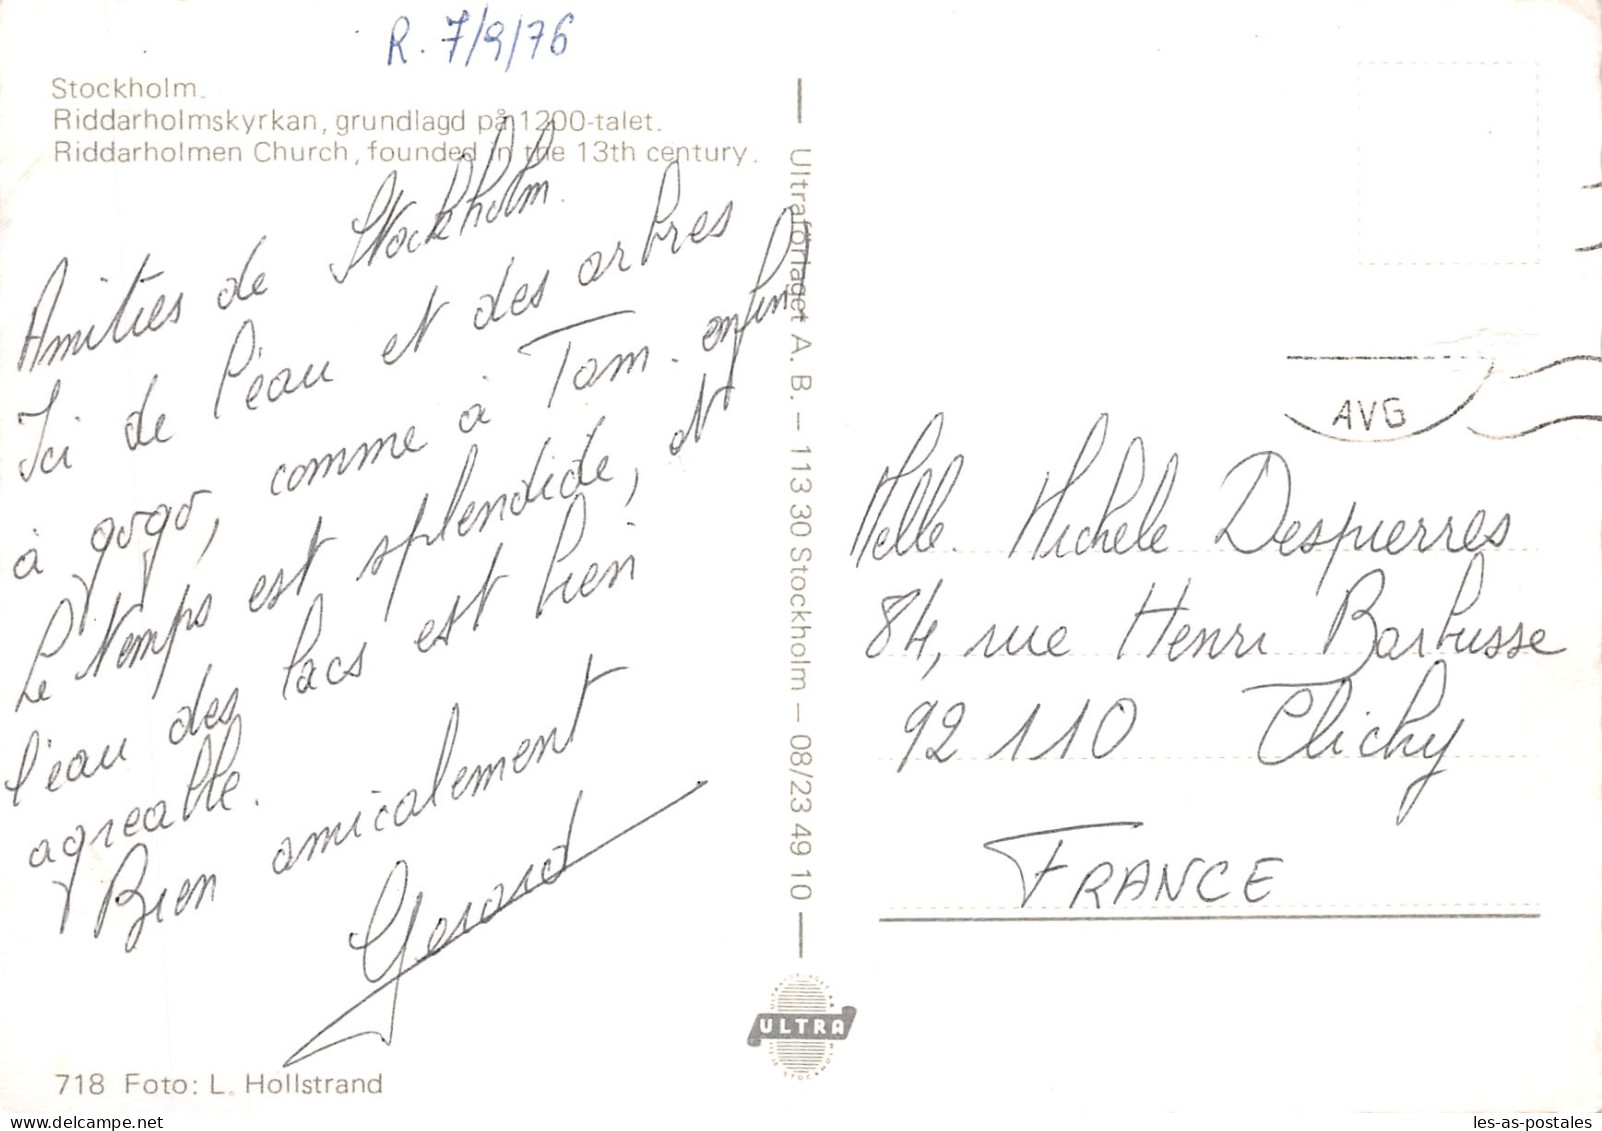 R. 7/9/76
Stockholm.
Riddarholmskyrkan, grundlagd på 1200-talet.
Riddarholmen Church, founded in the 13th century.
Amitiés de Stockholm.
Ici de l'eau et des arbres
à gogo, comme à Tam. enfin
Le temps est splendide, et
l'eau des lacs est bien
agreable.
Bien amicalement
Gerard
718 Foto: L. Hollstrand
Ultraförlaget A. B. – 113 30 Stockholm – 08/23 49 10
ULTRA
AVG
Melle. Michele Despierres
84, rue Henri Barbusse
92 110 Clichy
FRANCE
les-as-postales